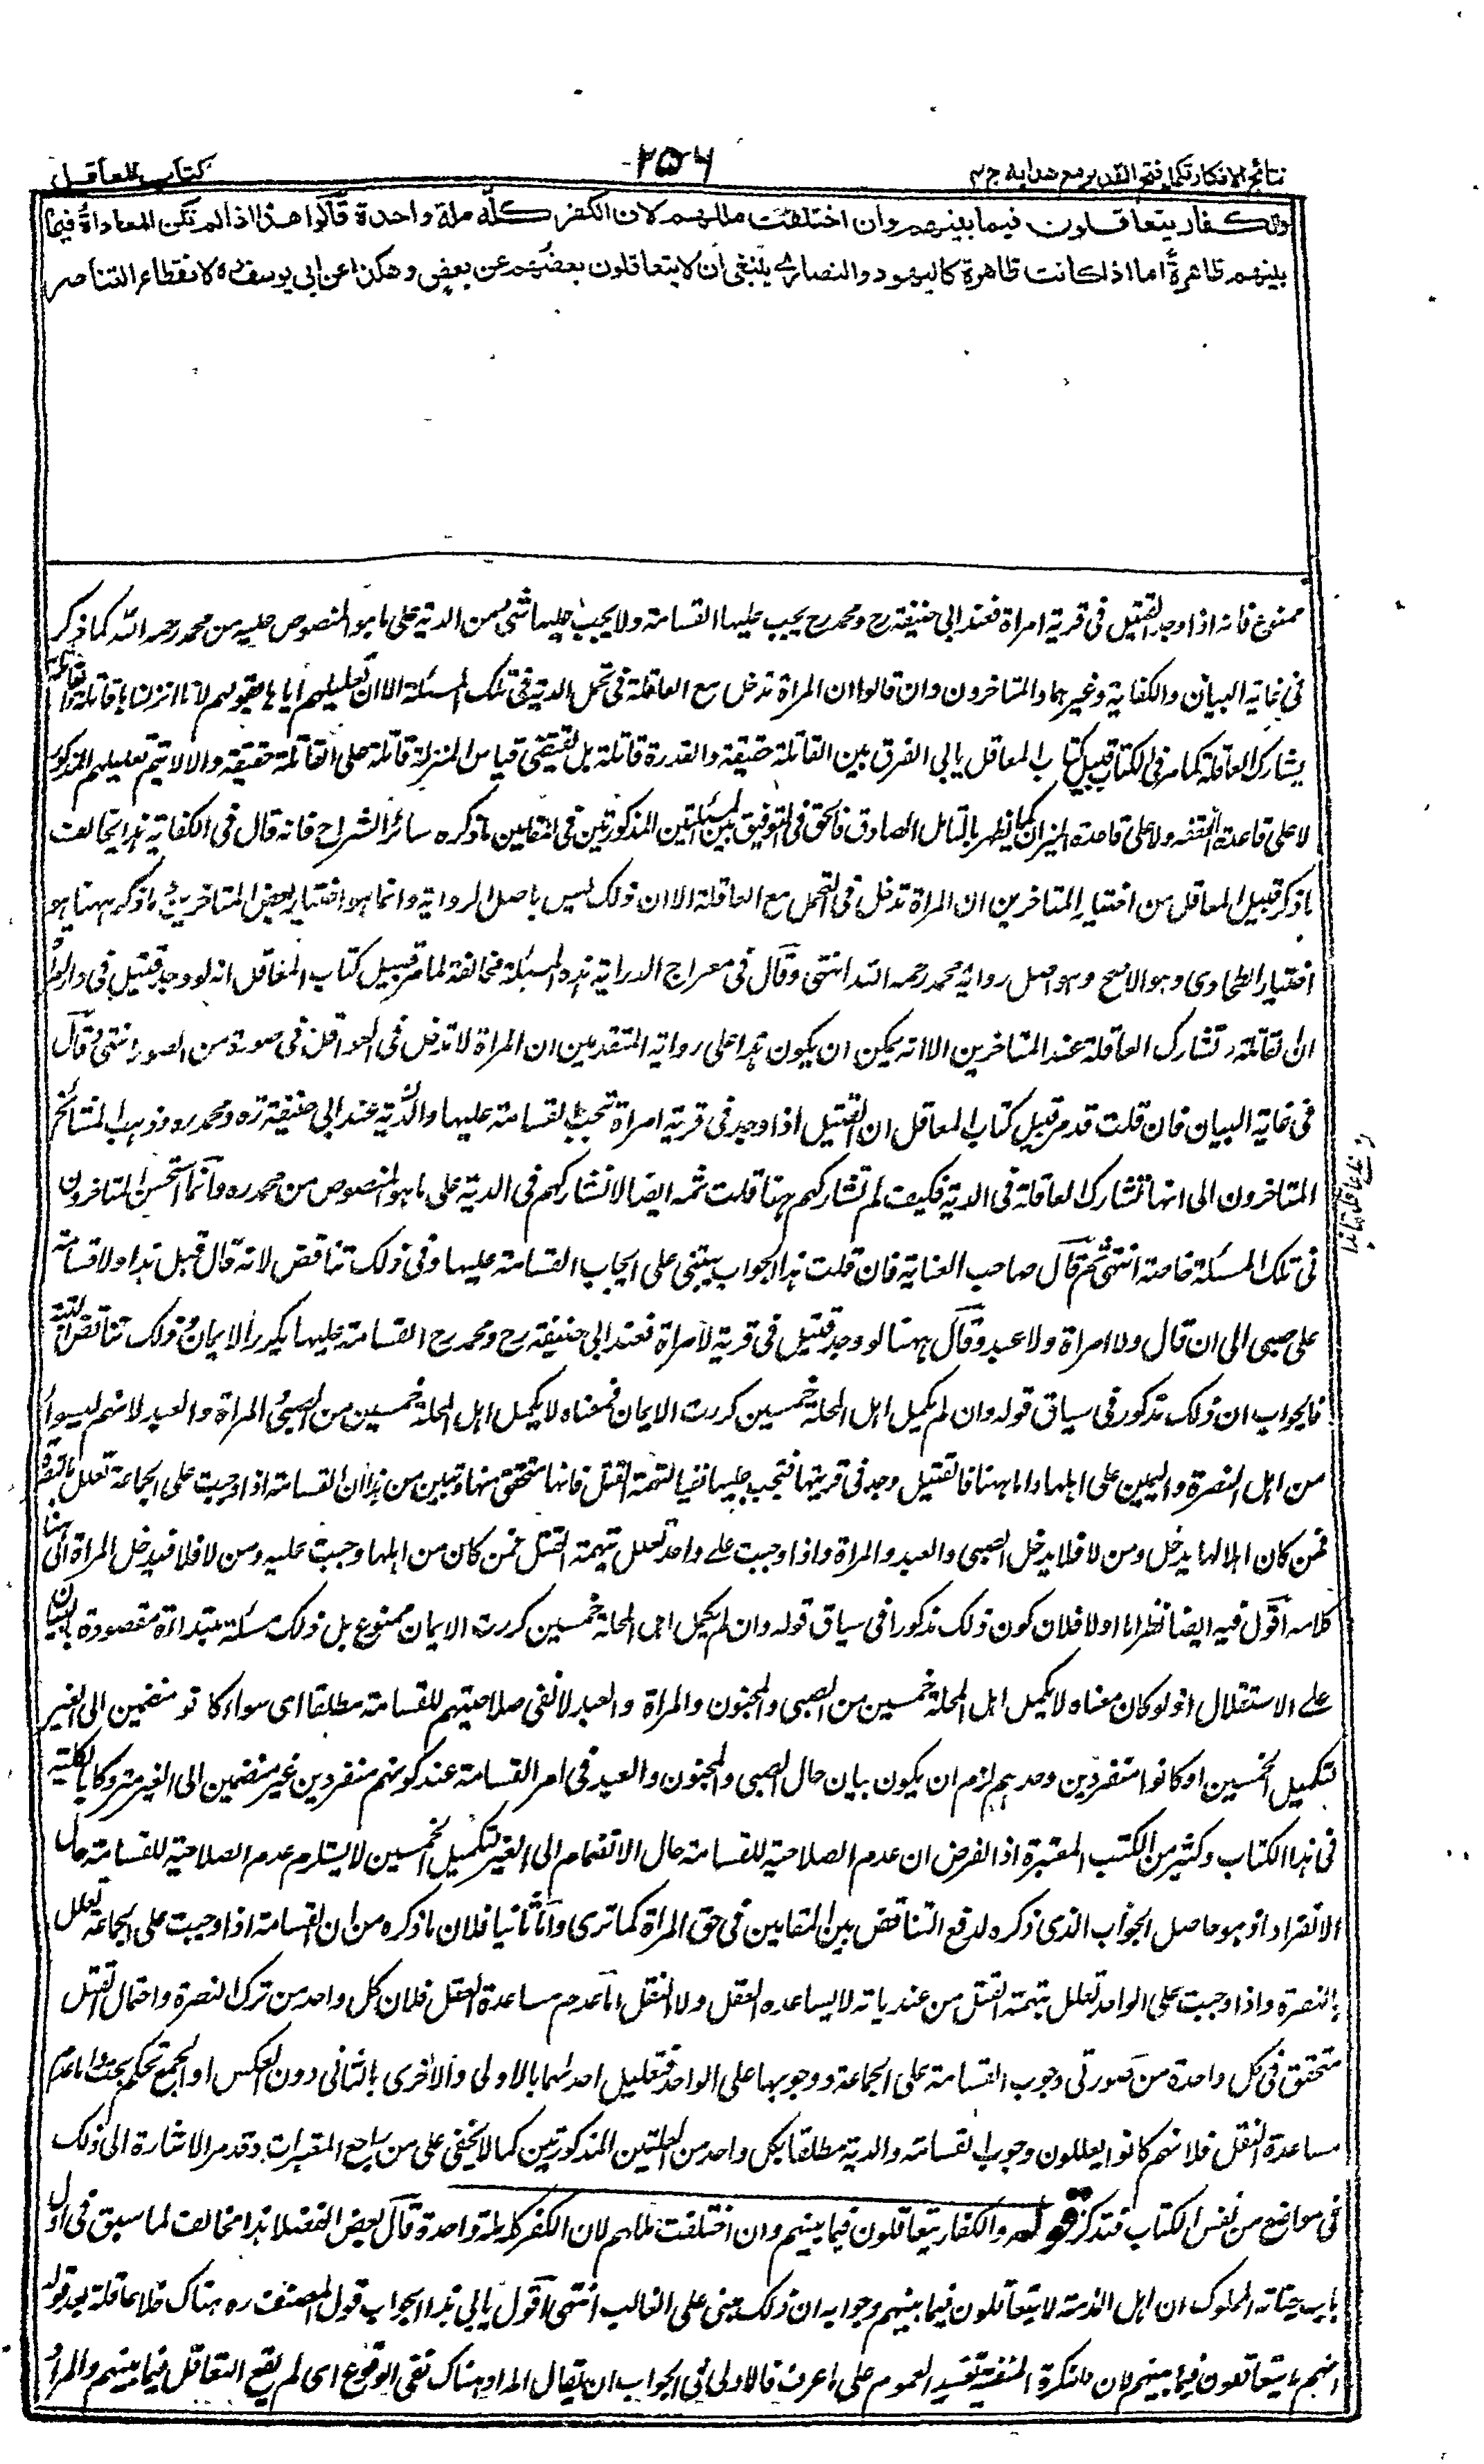 نتائج الافكار تكملة فتح القدير مع هدايه ج ٤
٢٥٦
كتاب المعاقل
والكفار يتعاقلون فيما بينهم وان اختلفت مللهم لان الكفر كله ملة واحدة قالوا هذا اذا لم تكن المعاداة فيما
بينهم ظاهرة اما اذا كانت ظاهرة كاليهود والنصارى ينبغى ان لا يتعاقلون بعضهم عن بعض وهكذا عن ابى يوسف ره لانقطاع التناصر
ممنوع فانه اذا وجد القتيل فى قرية امراة فعند ابى حنيفة رح ومحمد رح يجب عليها القسامة ولا يجب عليها شئ من الدية على ما هو المنصوص عليه من محمد رحمه الله كما ذكر
فى غاية البيان والكفاية وغيرهما والمتاخرون وان قالوا ان المراة تدخل مع العاقلة فى تحمل الدية فى تلك المسئلة الا ان تعليلهم اياها بقولهم لانا انزلناها قاتلة والقاتلة
يشارك العاقلة كما مر فى الكتاب قبيل كتاب المعاقل يابى الفرق بين القاتلة حقيقة والقدرة قاتلة بل يقتضى قياس المنزلة قاتلة على القاتلة حقيقة والا لا يتم تعليلهم المذكور
لا على قاعدة الفقه ولا على قاعدة الميزان كما يظهر بالتامل الصادق فالحق فى التوفيق بين المسئلتين المذكورتين فى المقامين ما ذكره سائر الشراح فانه قال فى الكفاية هذا يخالف
ما ذكر قبيل المعاقل من اختيار المتاخرين ان المراة تدخل فى التحمل مع العاقلة الا ان ذلك ليس باصل الرواية وانما هو اختيار بعض المتاخرين وما ذكر ههنا هو
اختيار الطحاوى وهو الاصح وهو اصل رواية محمد رحمه الله انتهى وقال فى معراج الدراية هذه المسئلة مخالفة لما مر قبيل كتاب المعاقل انه لو وجد قتيل فى دار امراة
ان القاتلة تشارك العاقلة عند المتاخرين الا انه يمكن ان يكون هذا على رواية المتقدمين ان المراة لا تدخل فى العواقل فى صورة من الصور انتهى وقال
فى غاية البيان فان قلت قد مر قبيل كتاب المعاقل ان القتيل اذا وجد فى قرية امراة تجب القسامة عليها والدية عند ابى حنيفة ره ومحمد ره وذهب المشائخ
المتاخرون الى انها تشارك العاقلة فى الدية فكيف لم تشاركهم هنا قلت ثمه ايضا لا تشاركهم فى الدية على ما هو المنصوص من محمد ره وانما استحسن المتاخرون
فى تلك المسئلة خاصة انتهى ثم قال صاحب العناية فان قلت هذا الجواب يبتنى على ايجاب القسامة عليها وفى ذلك تناقض لانه قال قبل هذا ولا قسامة
على صبى الى ان قال ولا امراة ولا عبد وقال ههنا لو وجد قتيل فى قرية لامراة فعند ابى حنيفة رح ومحمد رح القسامة عليها يكرر الايمان وذلك تناقض البتة
فالجواب ان ذلك مذكور فى سياق قوله وان لم يكمل اهل المحلة خمسين كررت الايمان فمعناه لا يكمل اهل المحلة خمسين من الصبى والمراة والعبد لانهم ليسوا
من اهل النصرة واليمين على اهلها واما ههنا فالقتيل وجد فى قريتها فتجب عليها نفيا لتهمة القتل فانها متحقق منها وتبين من هذا ان القسامة اذا وجبت على الجماعة تعلل بالنصرة
فمن كان اهلا لها يدخل ومن لا فلا يدخل الصبى والعبد والمراة واذا وجبت على واحد تعلل بتهمة القتل فمن كان من اهلها وجبت عليه ومن لا فلا فيدخل المراة الى هنا
كلامه اقول فيه ايضا نظر اما اولا فلان كون ذلك مذكورا فى سياق قوله وان لم يكمل اهل المحلة خمسين كررت الايمان ممنوع بل ذلك مسئلة مبتداءة مقصودة بالبيان
على الاستقلال اذ لو كان معناه لا يكمل اهل المحلة خمسين من الصبى والمجنون والمراة والعبد لا نفى صلاحيتهم للقسامة مطلقا اى سواء كانوا منضمين الى الغير
لتكميل الخمسين او كانوا منفردين وحدهم لزم ان يكون بيان حال الصبى والمجنون والعبد فى امر القسامة عند كونهم منفردين غير منضمين الى الغير متروكا بالكلية
فى هذا الكتاب وكثير من الكتب المعتبرة اذ الفرض ان عدم الصلاحية للقسامة حال الانضمام الى الغير لتكميل الخمسين لا يستلزم عدم الصلاحية للقسامة حال
الانفراد اذ هو حاصل الجواب الذى ذكره لدفع التناقض بين المقامين فى حق المراة كما ترى واما ثانيا فلان ما ذكره من ان القسامة اذا وجبت على الجماعة تعلل
بالنصرة واذا وجبت على الواحد تعلل بتهمة القتل من عندياته لا يساعده العقل ولا النقل اما عدم مساعدة العقل فلان كل واحد من ترك النصرة واحتمال القتل
متحقق فى كل واحدة من صورتى وجوب القسامة على الجماعة ووجوبها على الواحد فتعليل احدهما بالاولى والاخرى بالثانى دون العكس او الجمع تحكم بحت واما عدم
مساعدة النقل فلانهم كانوا يعللون وجوب القسامة والدية مطلقا بكل واحد من العلتين المذكورتين كما لا يخفى على من يراجع المعتبرات وقد مر الاشارة الى ذلك
فى مواضع من نفس الكتاب فتذكر قوله والكفار يتعاقلون فيما بينهم وان اختلفت مللهم لان الكفر كله ملة واحدة قال بعض الفضلا هذا مخالف لما سبق فى اول
باب جناية المملوك ان اهل الذمة لا يتعاقلون فيما بينهم وجوابه ان ذلك مبنى على الغالب انتهى اقول يابى هذا الجواب قول المصنف ره هناك فلا عاقلة بعد قوله
انهم لا يتعاقلون فيما بينهم لان النكرة المنفية تفيد العموم على ما عرف فالاولى فى الجواب ان يقال المراد هناك نفى الوقوع اى لم يقع التعاقل فيما بينهم والمراد